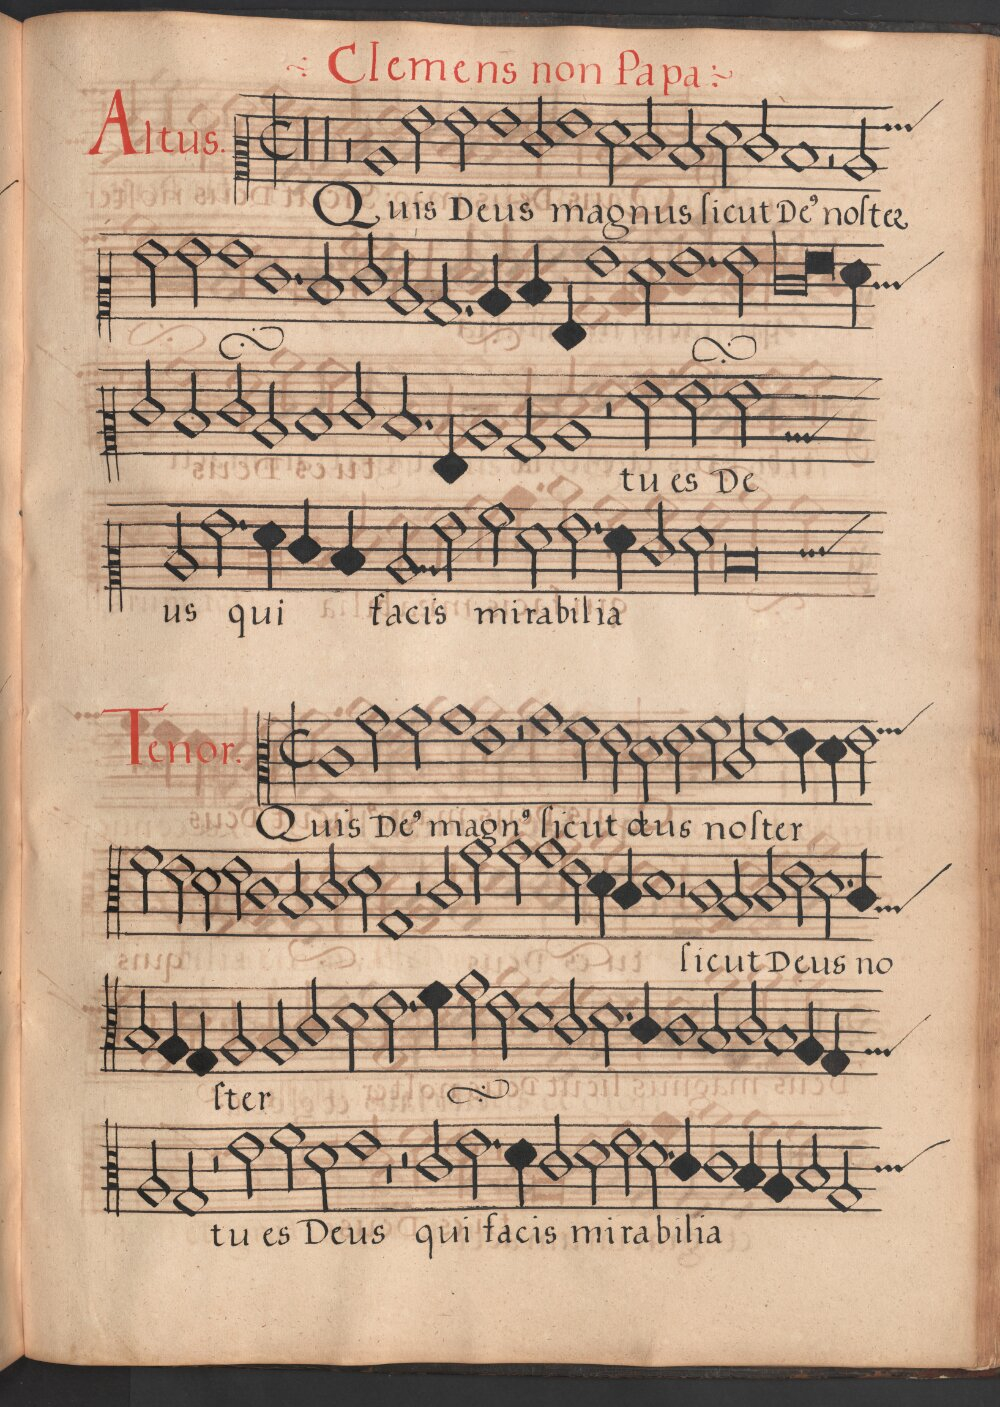 Clemens non Papa
Altus.
Quis Deus magnus ſicut De⁹ noſter
tu es De
us qui facis mirabilia
Tenor.
Quis De⁹ magn⁹ ſicut deus noſter
ſicut Deus no
ſter
tu es Deus qui facis mirabilia